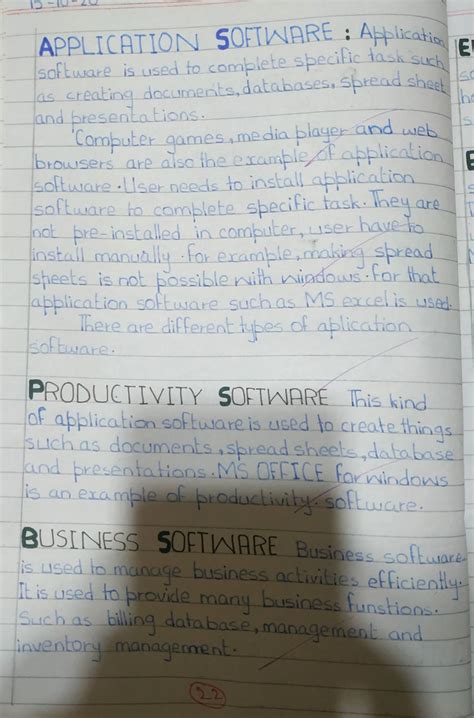 15-10-20
APPLICATION SOFTWARE : Application
software is used to complete specific task such
as creating documents, databases, spread sheet
and presentations.
Computer games, media player and web
browsers are also the example of application
software. User needs to install application
software to complete specific task. They are
not pre-installed in computer, user have to
install manually. for example, making spread
sheets is not possible with windows. for that
application software such as MS excel is used.
There are different types of aplication
software.
PRODUCTIVITY SOFTWARE This kind
of application software is used to create things
such as documents, spread sheets, database
and presentations. MS OFFICE for windows
is an example of productivity software.
BUSINESS SOFTWARE Business software
is used to manage business activities efficiently.
It is used to provide many business funstions.
Such as billing database, management and
inventory management.
22